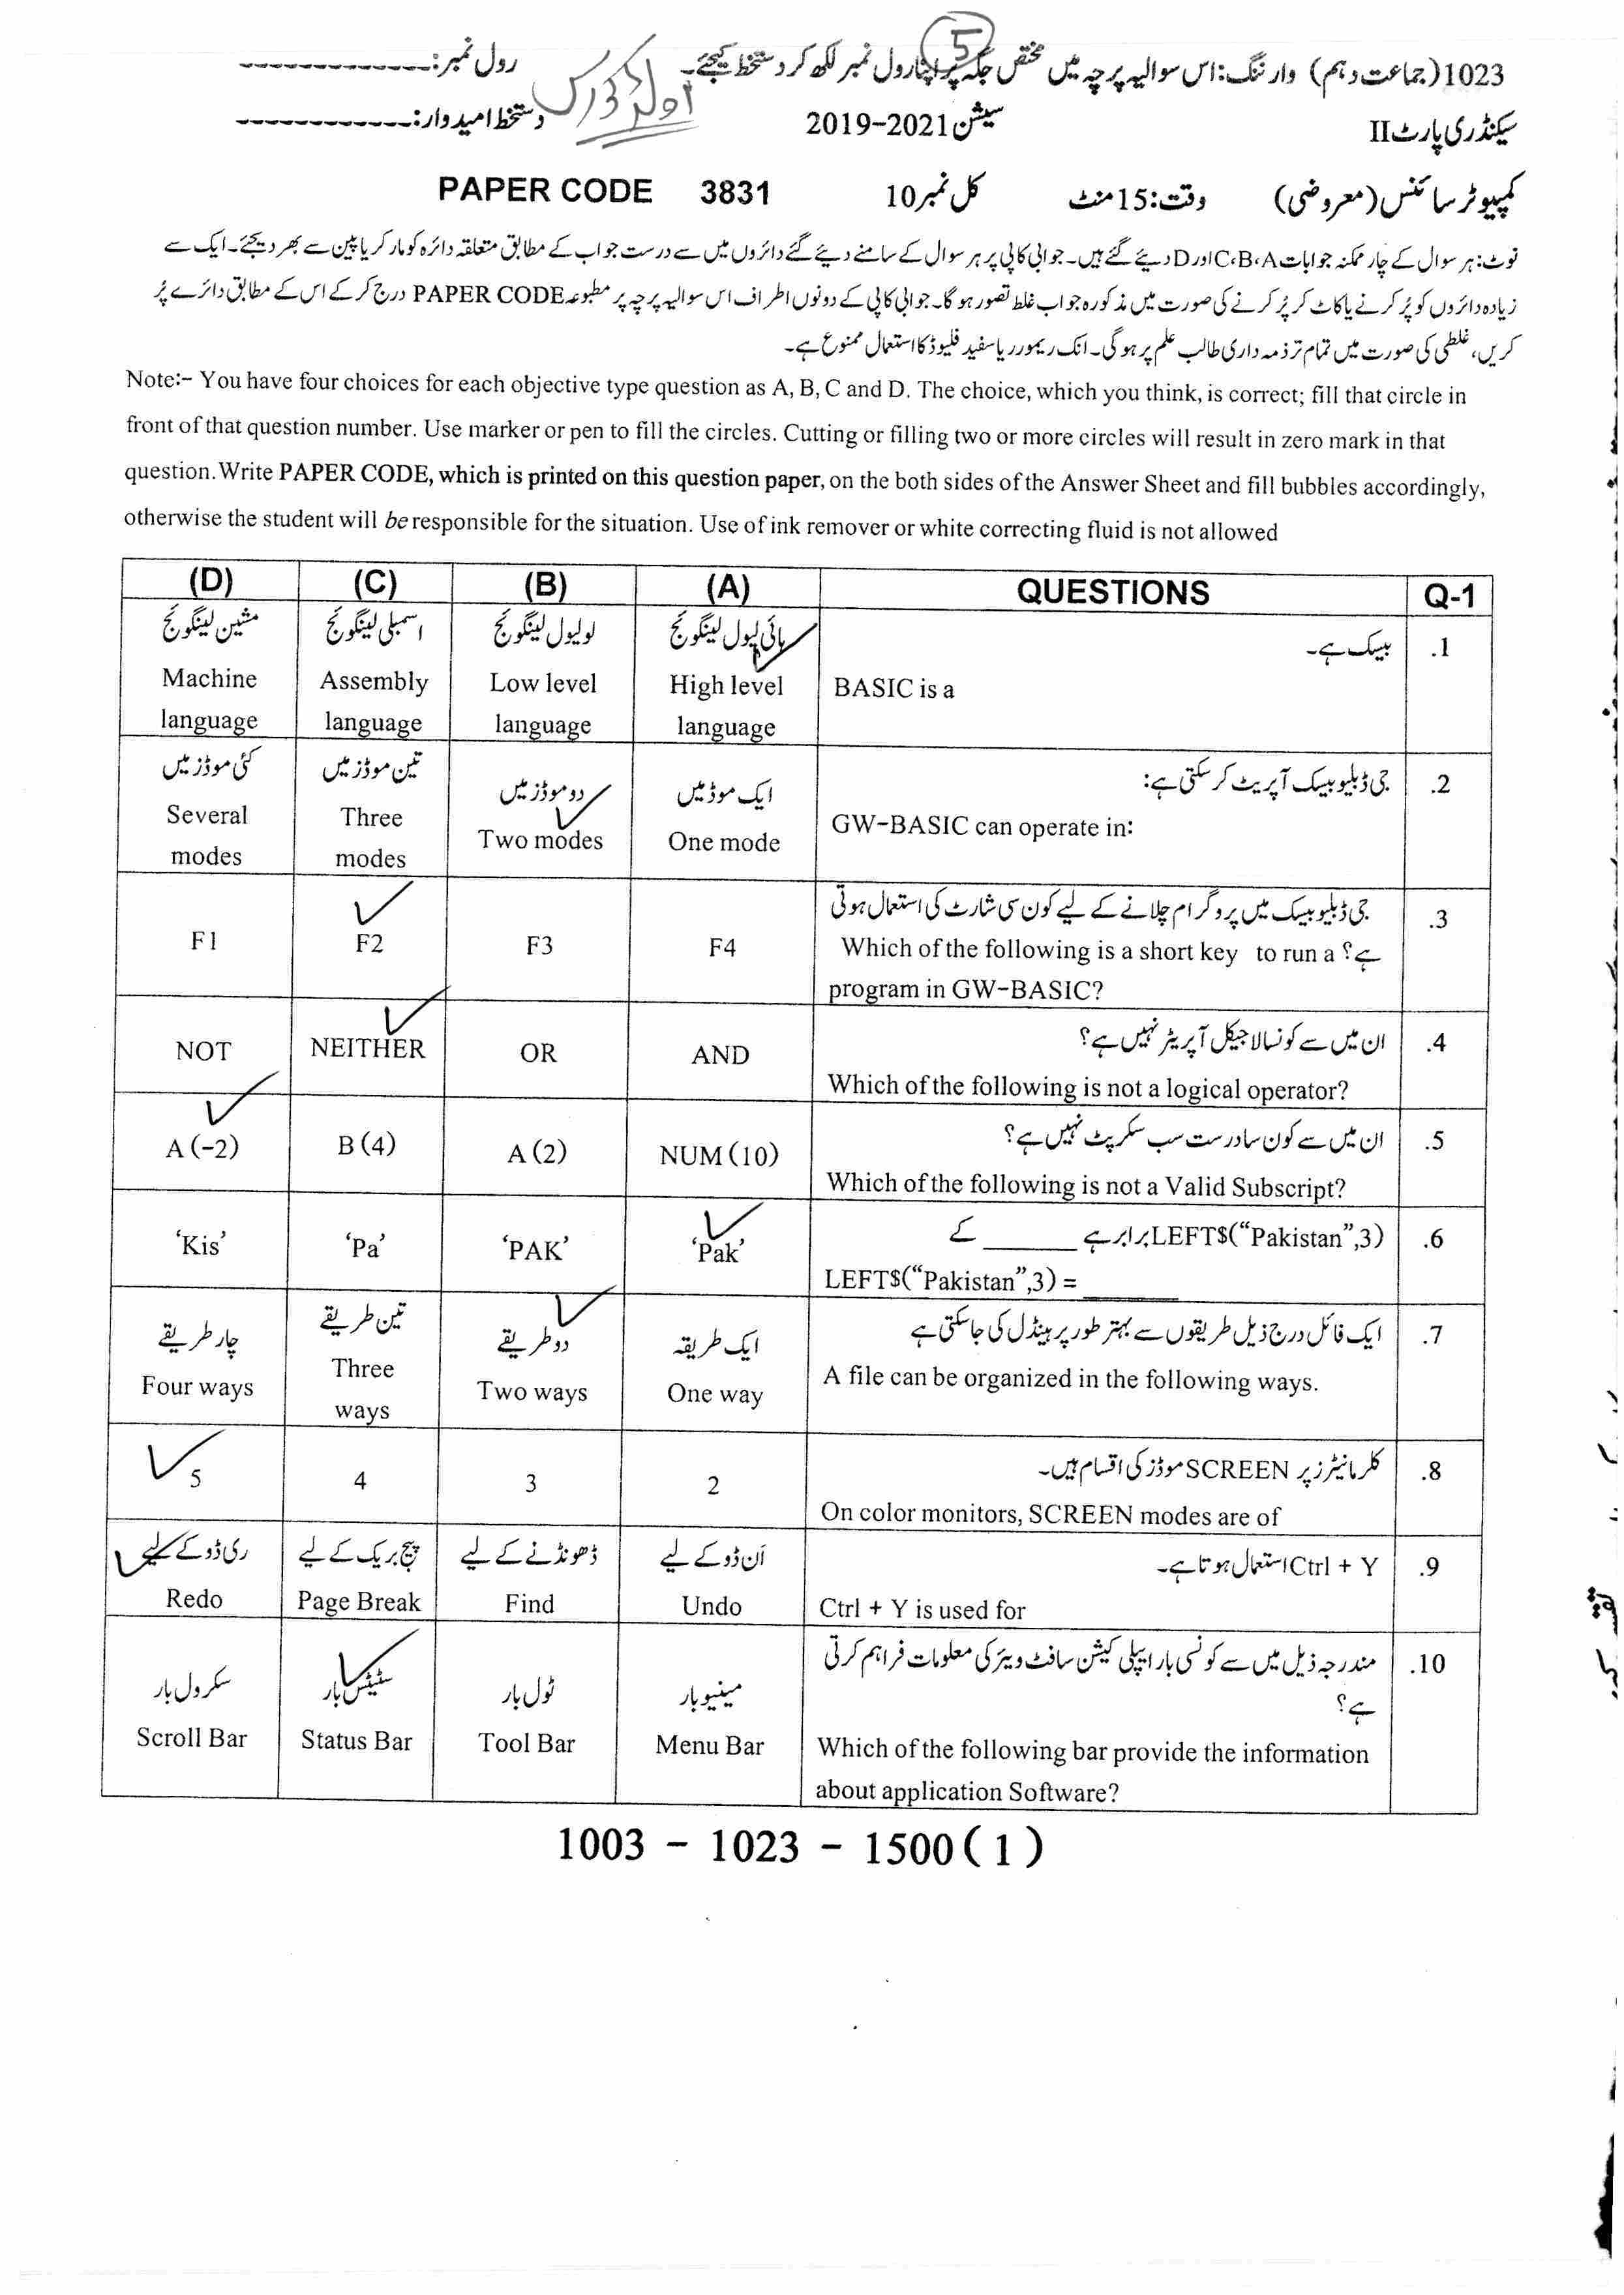 5
1023(جماعت دہم) وارننگ:اس سوالیہ پرچہ میں مختص جگہ پر اپنا رول نمبر لکھ کر دستخط کیجئے۔ رول نمبر:-------------
سیکنڈری پارٹ II سیشن 2021-2019 دستخط امیدوار:-------------
اولڈ کورس
کمپیوٹر سائنس (معروضی) وقت:15منٹ کل نمبر10 PAPER CODE 3831
نوٹ:ہر سوال کے چار ممکنہ جوابات C،B،A اور D دیئے گئے ہیں۔جوابی کاپی پر ہر سوال کے سامنے دیئے گئے دائروں میں سے درست جواب کے مطابق متعلقہ دائرہ کو مارکر یا پین سے بھر دیجئے۔ایک سے
زیادہ دائروں کو پُر کرنے یا کاٹ کر پُر کرنے کی صورت میں مذکورہ جواب غلط تصور ہوگا۔جوابی کاپی کے دونوں اطراف اس سوالیہ پرچہ پر مطبوعہ PAPER CODE درج کر کے اس کے مطابق دائرے پُر
کریں،غلطی کی صورت میں تمام تر ذمہ داری طالب علم پر ہوگی۔انک ریمورر یا سفید فلیوڈ کا استعمال ممنوع ہے۔
Note:- You have four choices for each objective type question as A, B, C and D. The choice, which you think, is correct; fill that circle in
front of that question number. Use marker or pen to fill the circles. Cutting or filling two or more circles will result in zero mark in that
question. Write PAPER CODE, which is printed on this question paper, on the both sides of the Answer Sheet and fill bubbles accordingly,
otherwise the student will be responsible for the situation. Use of ink remover or white correcting fluid is not allowed
(D) (C) (B) (A) QUESTIONS Q-1
مشین لینگوئج اسمبلی لینگوئج لو لیول لینگوئج ہائی لیول لینگوئج بیسک ہے۔ .1
Machine Assembly Low level High level BASIC is a
language language language language
کئی موڈز میں تین موڈز میں دو موڈز میں ایک موڈ میں جی ڈبلیو بیسک آپریٹ کر سکتی ہے: .2
Several Three Two modes One mode GW-BASIC can operate in:
modes modes
جی ڈبلیو بیسک میں پروگرام چلانے کے لیے کون سی شارٹ کی استعمال ہوتی .3
F1 F2 F3 F4 Which of the following is a short key to run a ہے؟
program in GW-BASIC?
ان میں سے کونسا لاجیکل آپریٹر نہیں ہے؟ .4
NOT NEITHER OR AND
Which of the following is not a logical operator?
ان میں سے کون سا درست سب سکرپٹ نہیں ہے؟ .5
A(-2) B(4) A(2) NUM(10)
Which of the following is not a Valid Subscript?
LEFT$("Pakistan",3) برابر ہے ______ کے .6
'Kis' 'Pa' 'PAK' 'Pak'
LEFT$("Pakistan",3) = ______
چار طریقے تین طریقے دو طریقے ایک طریقہ ایک فائل درج ذیل طریقوں سے بہتر طور پر ہینڈل کی جا سکتی ہے .7
Four ways Three Two ways One way A file can be organized in the following ways.
ways
کلر مانیٹرز پر SCREEN موڈز کی اقسام ہیں۔ .8
5 4 3 2
On color monitors, SCREEN modes are of
ری ڈو کے لیے پیج بریک کے لیے ڈھونڈنے کے لیے اَن ڈو کے لیے Ctrl + Y استعمال ہوتا ہے۔ .9
Redo Page Break Find Undo Ctrl + Y is used for
مندرجہ ذیل میں سے کونسی بار ایپلی کیشن سافٹ ویئر کی معلومات فراہم کرتی .10
سکرول بار سٹیٹس بار ٹول بار مینیو بار ہے؟
Scroll Bar Status Bar Tool Bar Menu Bar Which of the following bar provide the information
about application Software?
1003 - 1023 - 1500(1)